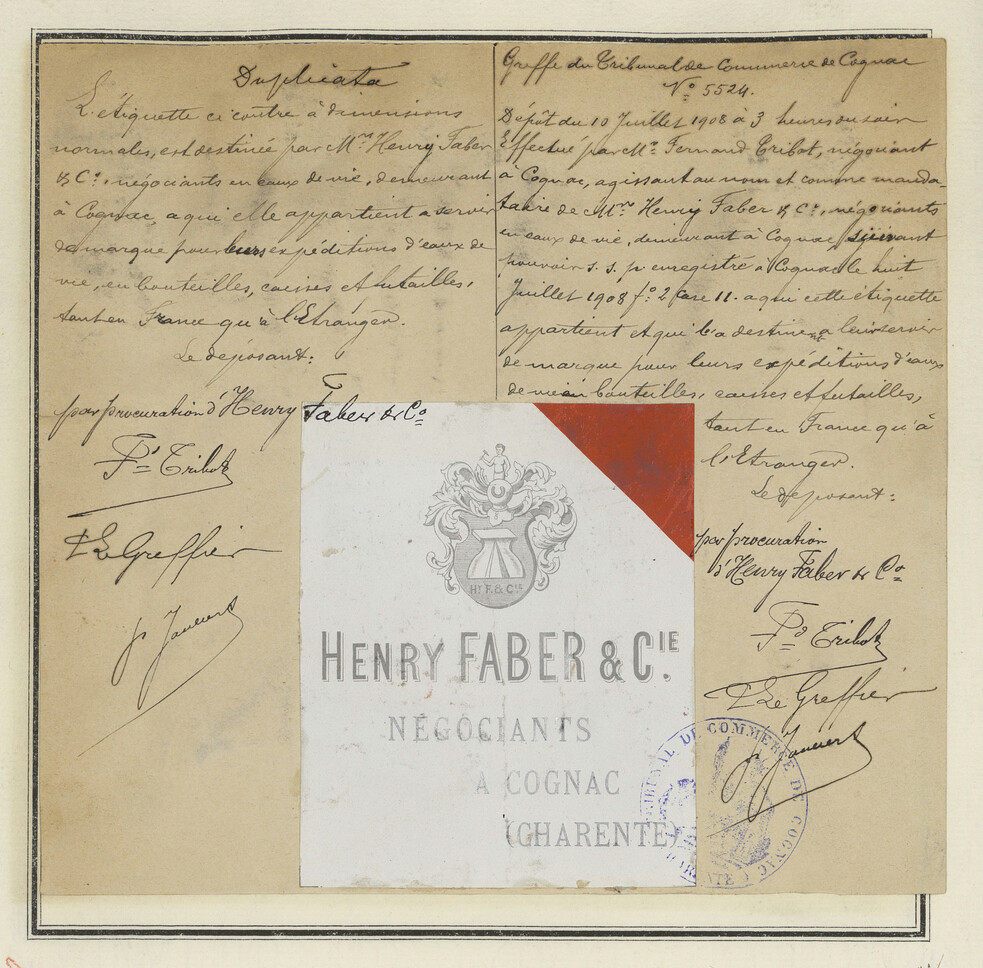 Duplicata
L'étiquette ci contre à dimensions
normales, est destinée par Mrs Henry Faber
& Cie, négociants en eaux de vie, demeurant
à Cognac, a qui elle appartient a servir
de marque pour leurs expéditions d'eaux de
vie, en bouteilles, caisses et futailles,
tant en France qu'à l'Etranger.
Le déposant:
par procuration d'Henry Faber & Co
Fd Tribot
P Le Greffier
Greffe du Tribunal de Commerce de Cognac
No 5524.
Dépôt du 10 Juillet 1908 à 3 heures du soir
Effectué par Mr Fernand Tribot, négociant
à Cognac, agissant au nom et comme manda-
taire de Mrs Henry Faber & Cie, négociants
en eaux de vie, demeurant à Cognac, suivant
pouvoir s. s. p. enregistré à Cognac le huit
Juillet 1908 fo 2 Case 11. a qui cette étiquette
appartient et qui l'a destinent a leur servir
de marque pour leurs expéditions d'eaux
de vie en bouteilles, caisses et futailles,
tant en France qu'à
l'Etranger.
Le déposant:
par procuration
d'Henry Faber & Co
Fd Tribot
P Le Greffier
HY F. & CIE
HENRY FABER & CIE.
NÉGOCIANTS
A COGNAC
(CHARENTE)
TRIBUNAL DE COMMERCE DE COGNAC